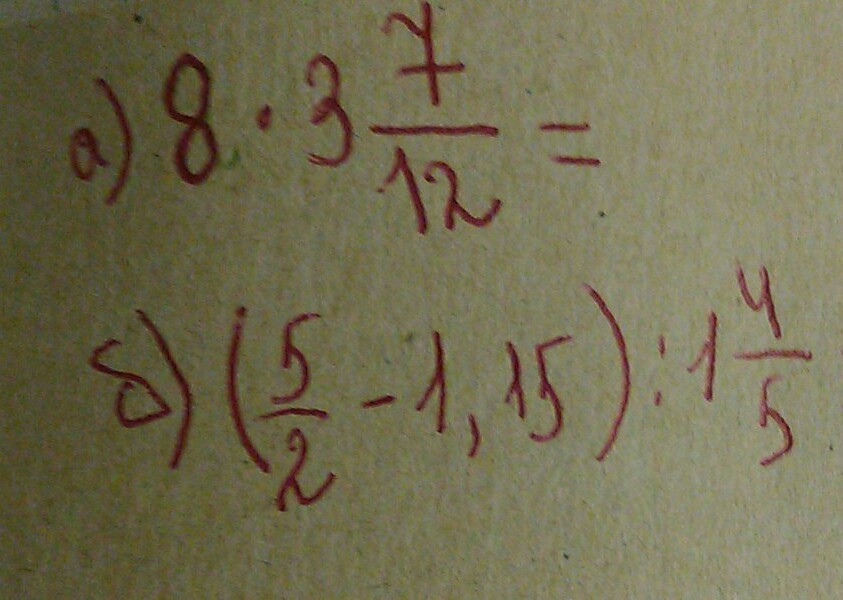 а) 8 · 3 7/12 =
б) (5/2 - 1,15) : 1 4/5